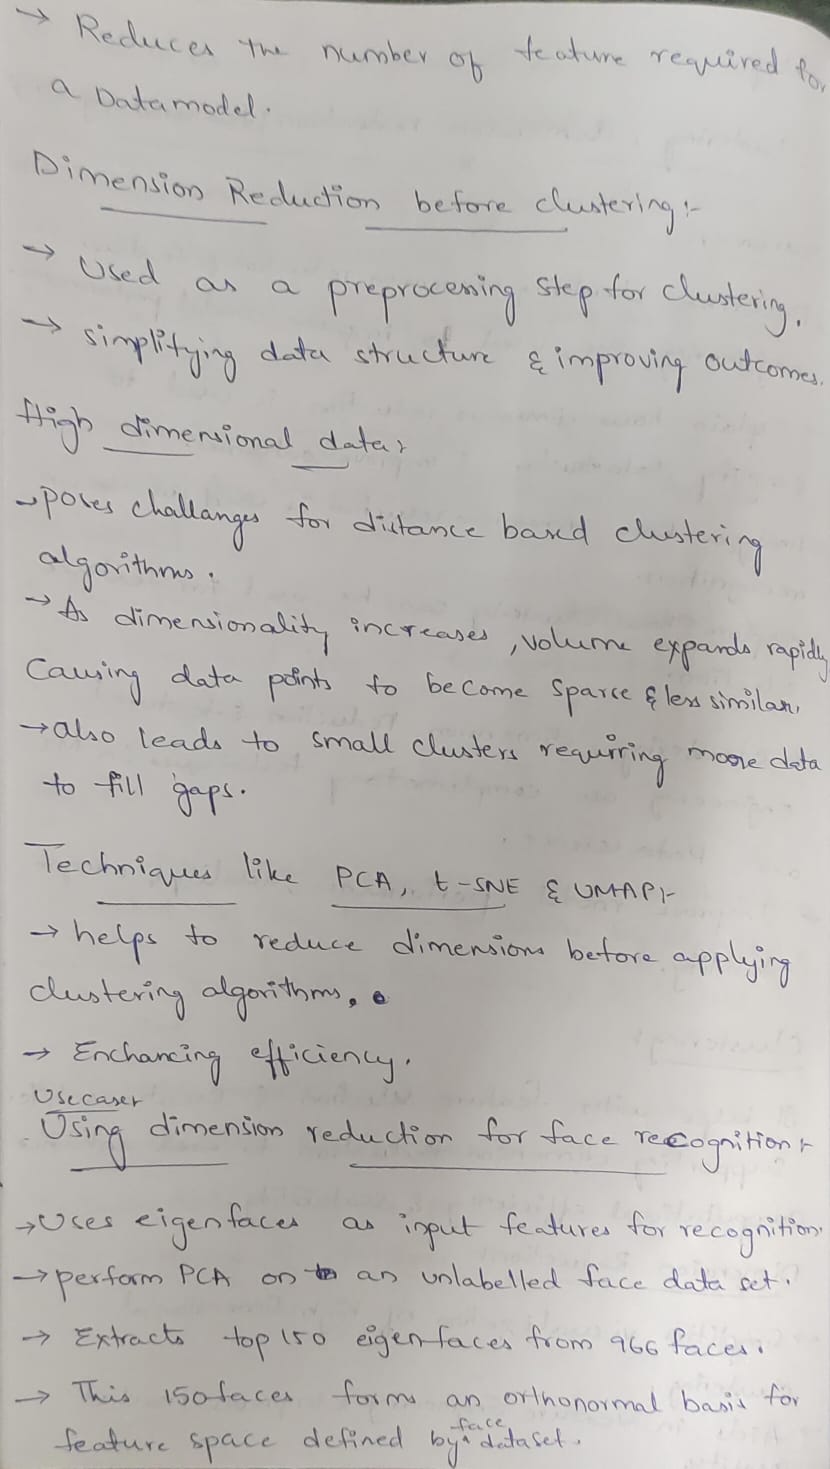 → Reduces the number of feature required for
a Datamodel.
Dimension Reduction before clustering:-
→ Used as a preprocessing step for clustering.
→ simplifying data structure & improving outcomes.
High dimensional data:
→ poses challanges for distance based clustering
algorithms.
→ As dimensionality increases, volume expands rapidly
Causing data points to become sparse & less similar,
→ also leads to small clusters requiring more data
to fill gaps.
Techniques like PCA, t-SNE & UMAP:-
→ helps to reduce dimensions before applying
clustering algorithms.
→ Enchancing efficiency.
Usecases
Using dimension reduction for face recognition:-
→ Uses eigenfaces as input features for recognition.
→ perform PCA on an unlabelled face data set.
→ Extracts top 150 eigenfaces from 966 faces.
→ This 150faces forms an orthonormal basis for
feature space defined by face dataset.